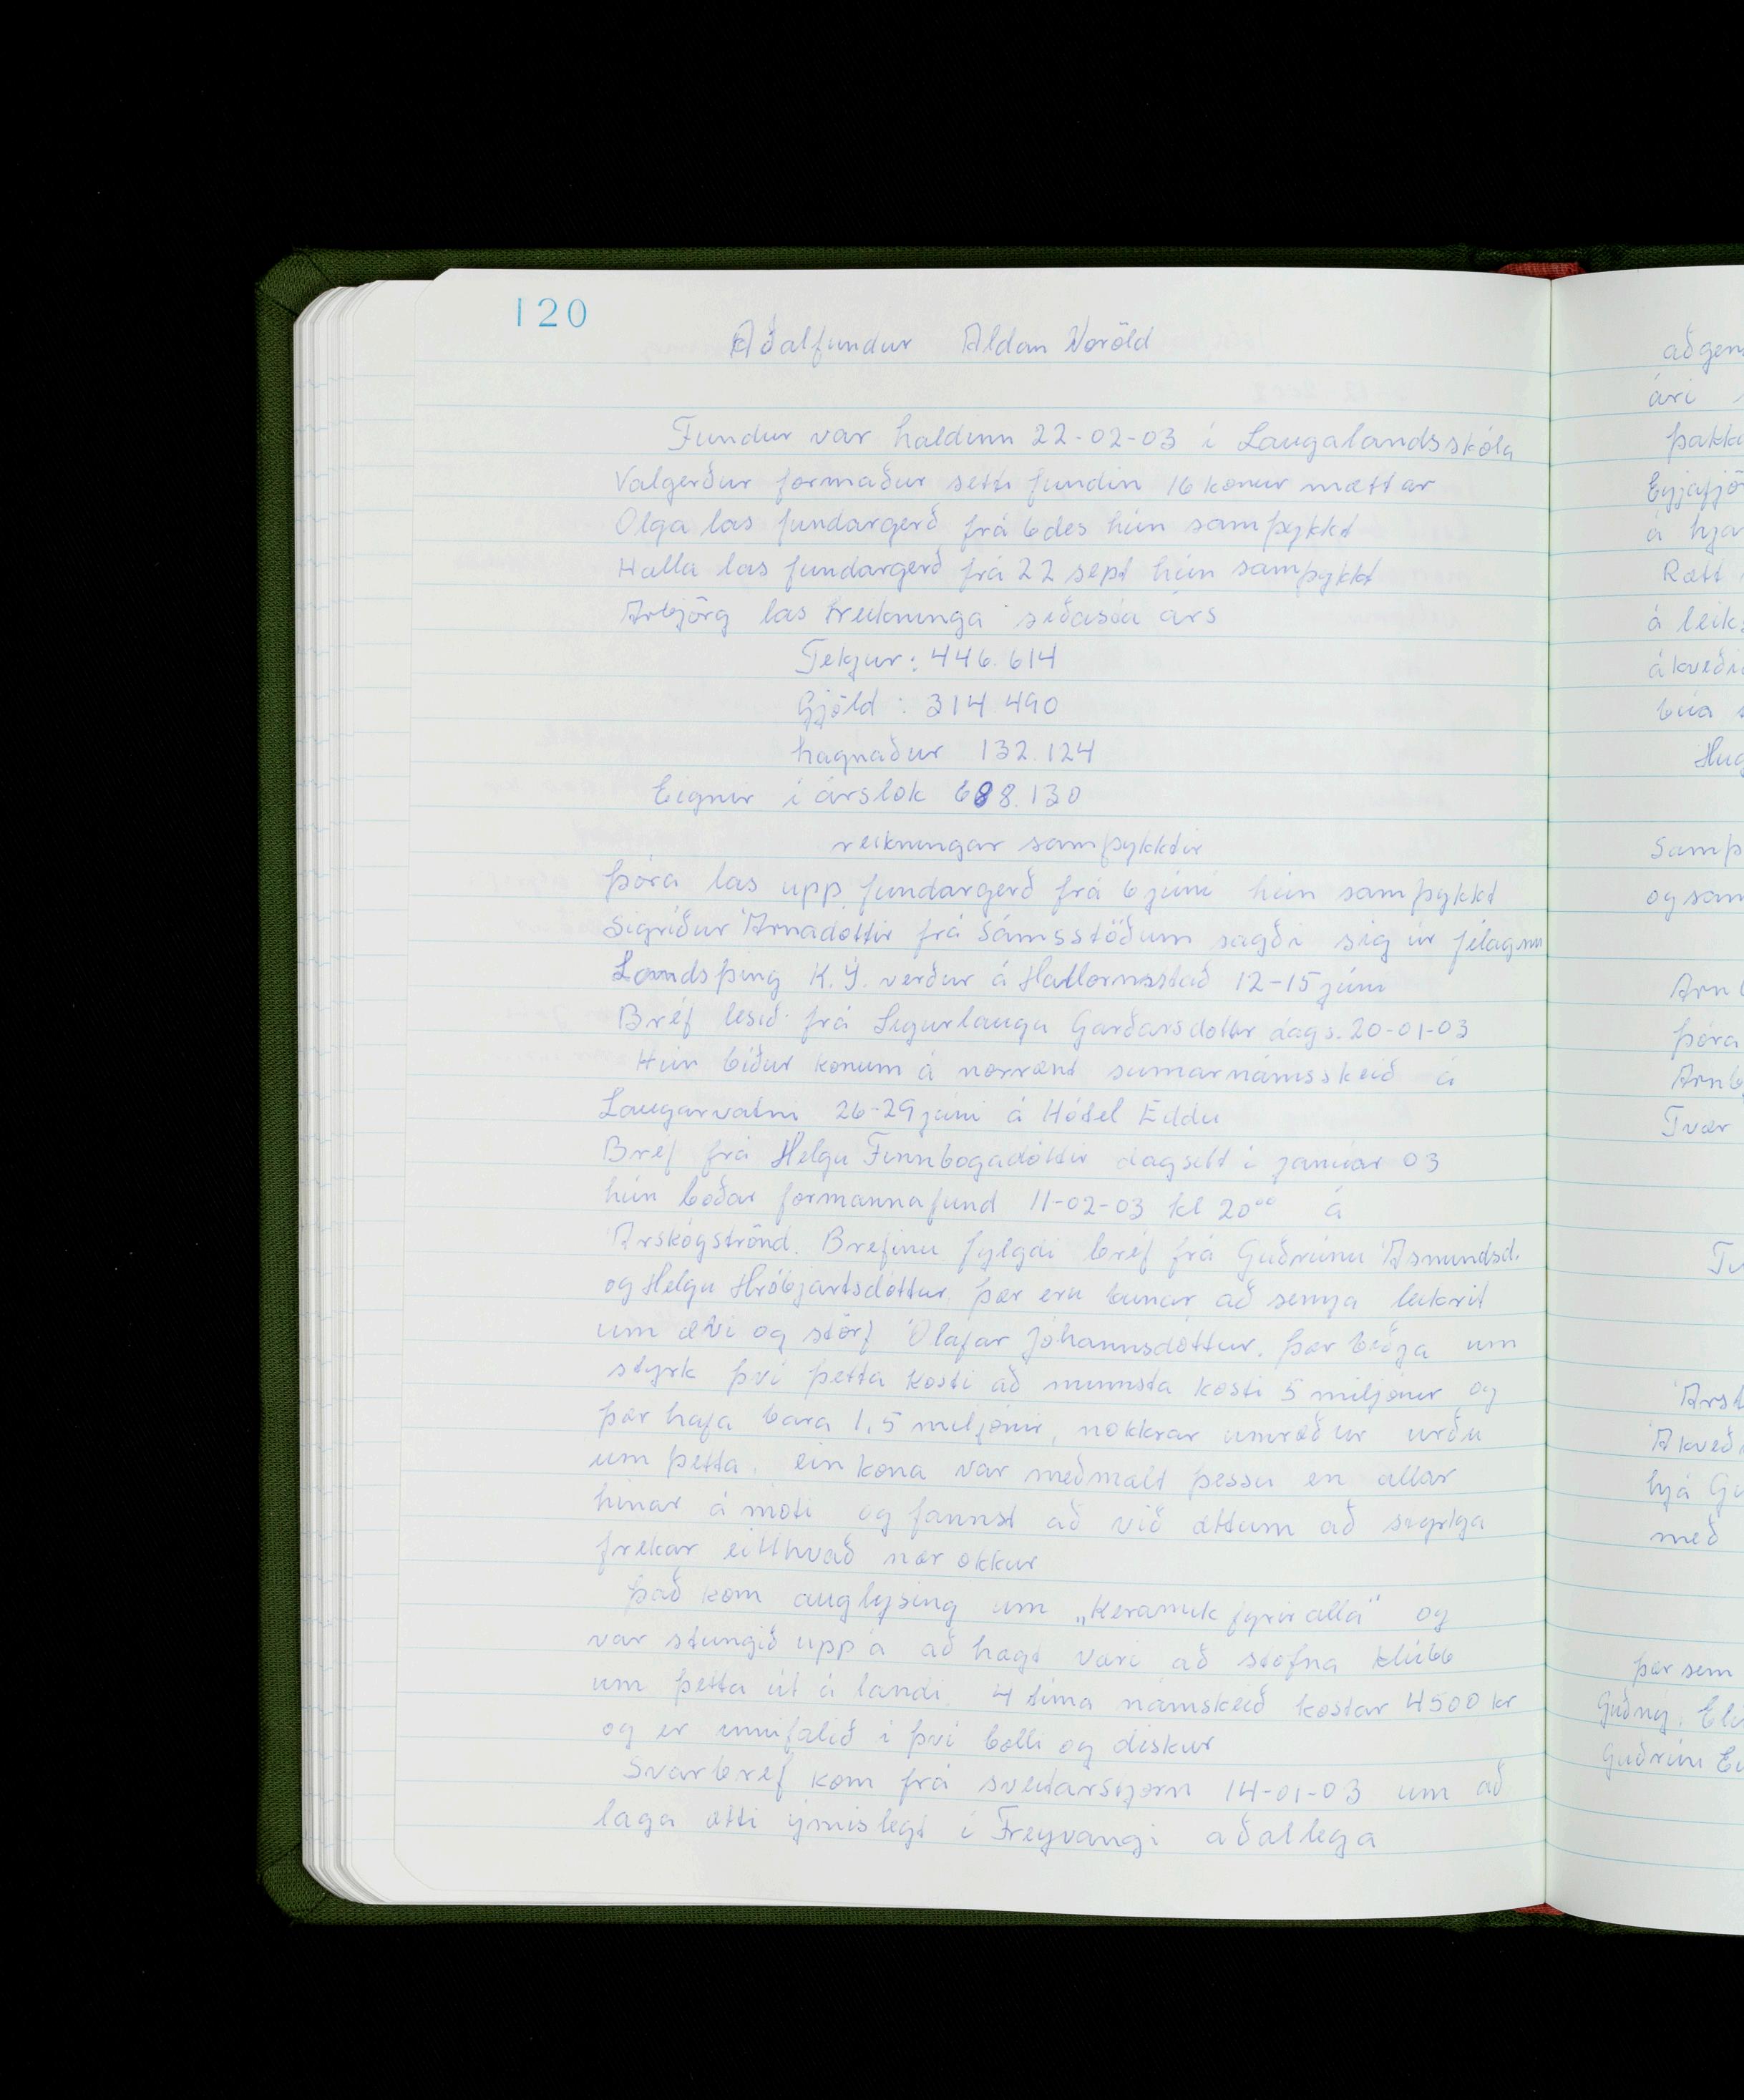 120
Aðalfundur Aldan Voröld
Fundur var haldinn 22-02-03 í Laugalandsskóla
Valgerður formaður setti fundin 16 konur mættar
Olga las fundargerð frá 6 des hún samþykkt
Halla las fundargerð frá 22 sept hún samþykkt
las reikninga síðasta árs
Tekjur: 446.614
Gjöld: 314 490
hagnaður 132.124
Eignir í árslok 688.130
reikningar samþykktir
Þóra las upp fundargerð frá 6 júní hún samþykkt
Sigríður Árnadóttir frá Sámsstöðum sagði sig úr félaginu
Landsþing K.Í. verður á Hallormsstað 12-15 júní
Bréf lesið frá Sigurlaugu Garðarsdóttir dags. 20-01-03
Hún bíður konum á norrænt sumarnámsskeið á
Laugarvatni 26-29 júní á Hótel Eddu
Bréf frá Helgu Finnbogadóttir dagsett í janúar 03
hún boðar formannafund 11-02-03 kl 20⁰⁰ á
Árskógströnd. Bréfinu fylgdi bréf frá Guðrúnu Ásmundsd.
og Helgu Hróbjartsdóttur. þær eru búnar að semja leikrit
um ævi og störf Ólafar Jóhannsdóttur. Þær biðja um
styrk því þetta kosti að minnsta kosti 5 miljónir og
þær hafa bara 1,5 miljónir, nokkrar umræður urðu
um þetta. ein kona var meðmælt þessu en allar
hinar á móti og fannst að við ættum að styrkja
frekar eitthvað nær okkur
Það kom auglýsing um „Keramik fyrir alla" og
var stungið uppá að hægt væri að stofna klúbb
um þetta út á landi. 4 tíma námskeið kostar 4500 kr
og er innifalið í því bolli og diskur
Svarbréf kom frá sveitarstjórn 14-01-03 um að
laga ætti ýmislegt í Freyvangi aðallega
ári
á
Rætt
búa
og
Þóra
Tvær
hjá
með
þar sem
Guðný.
Guðrún